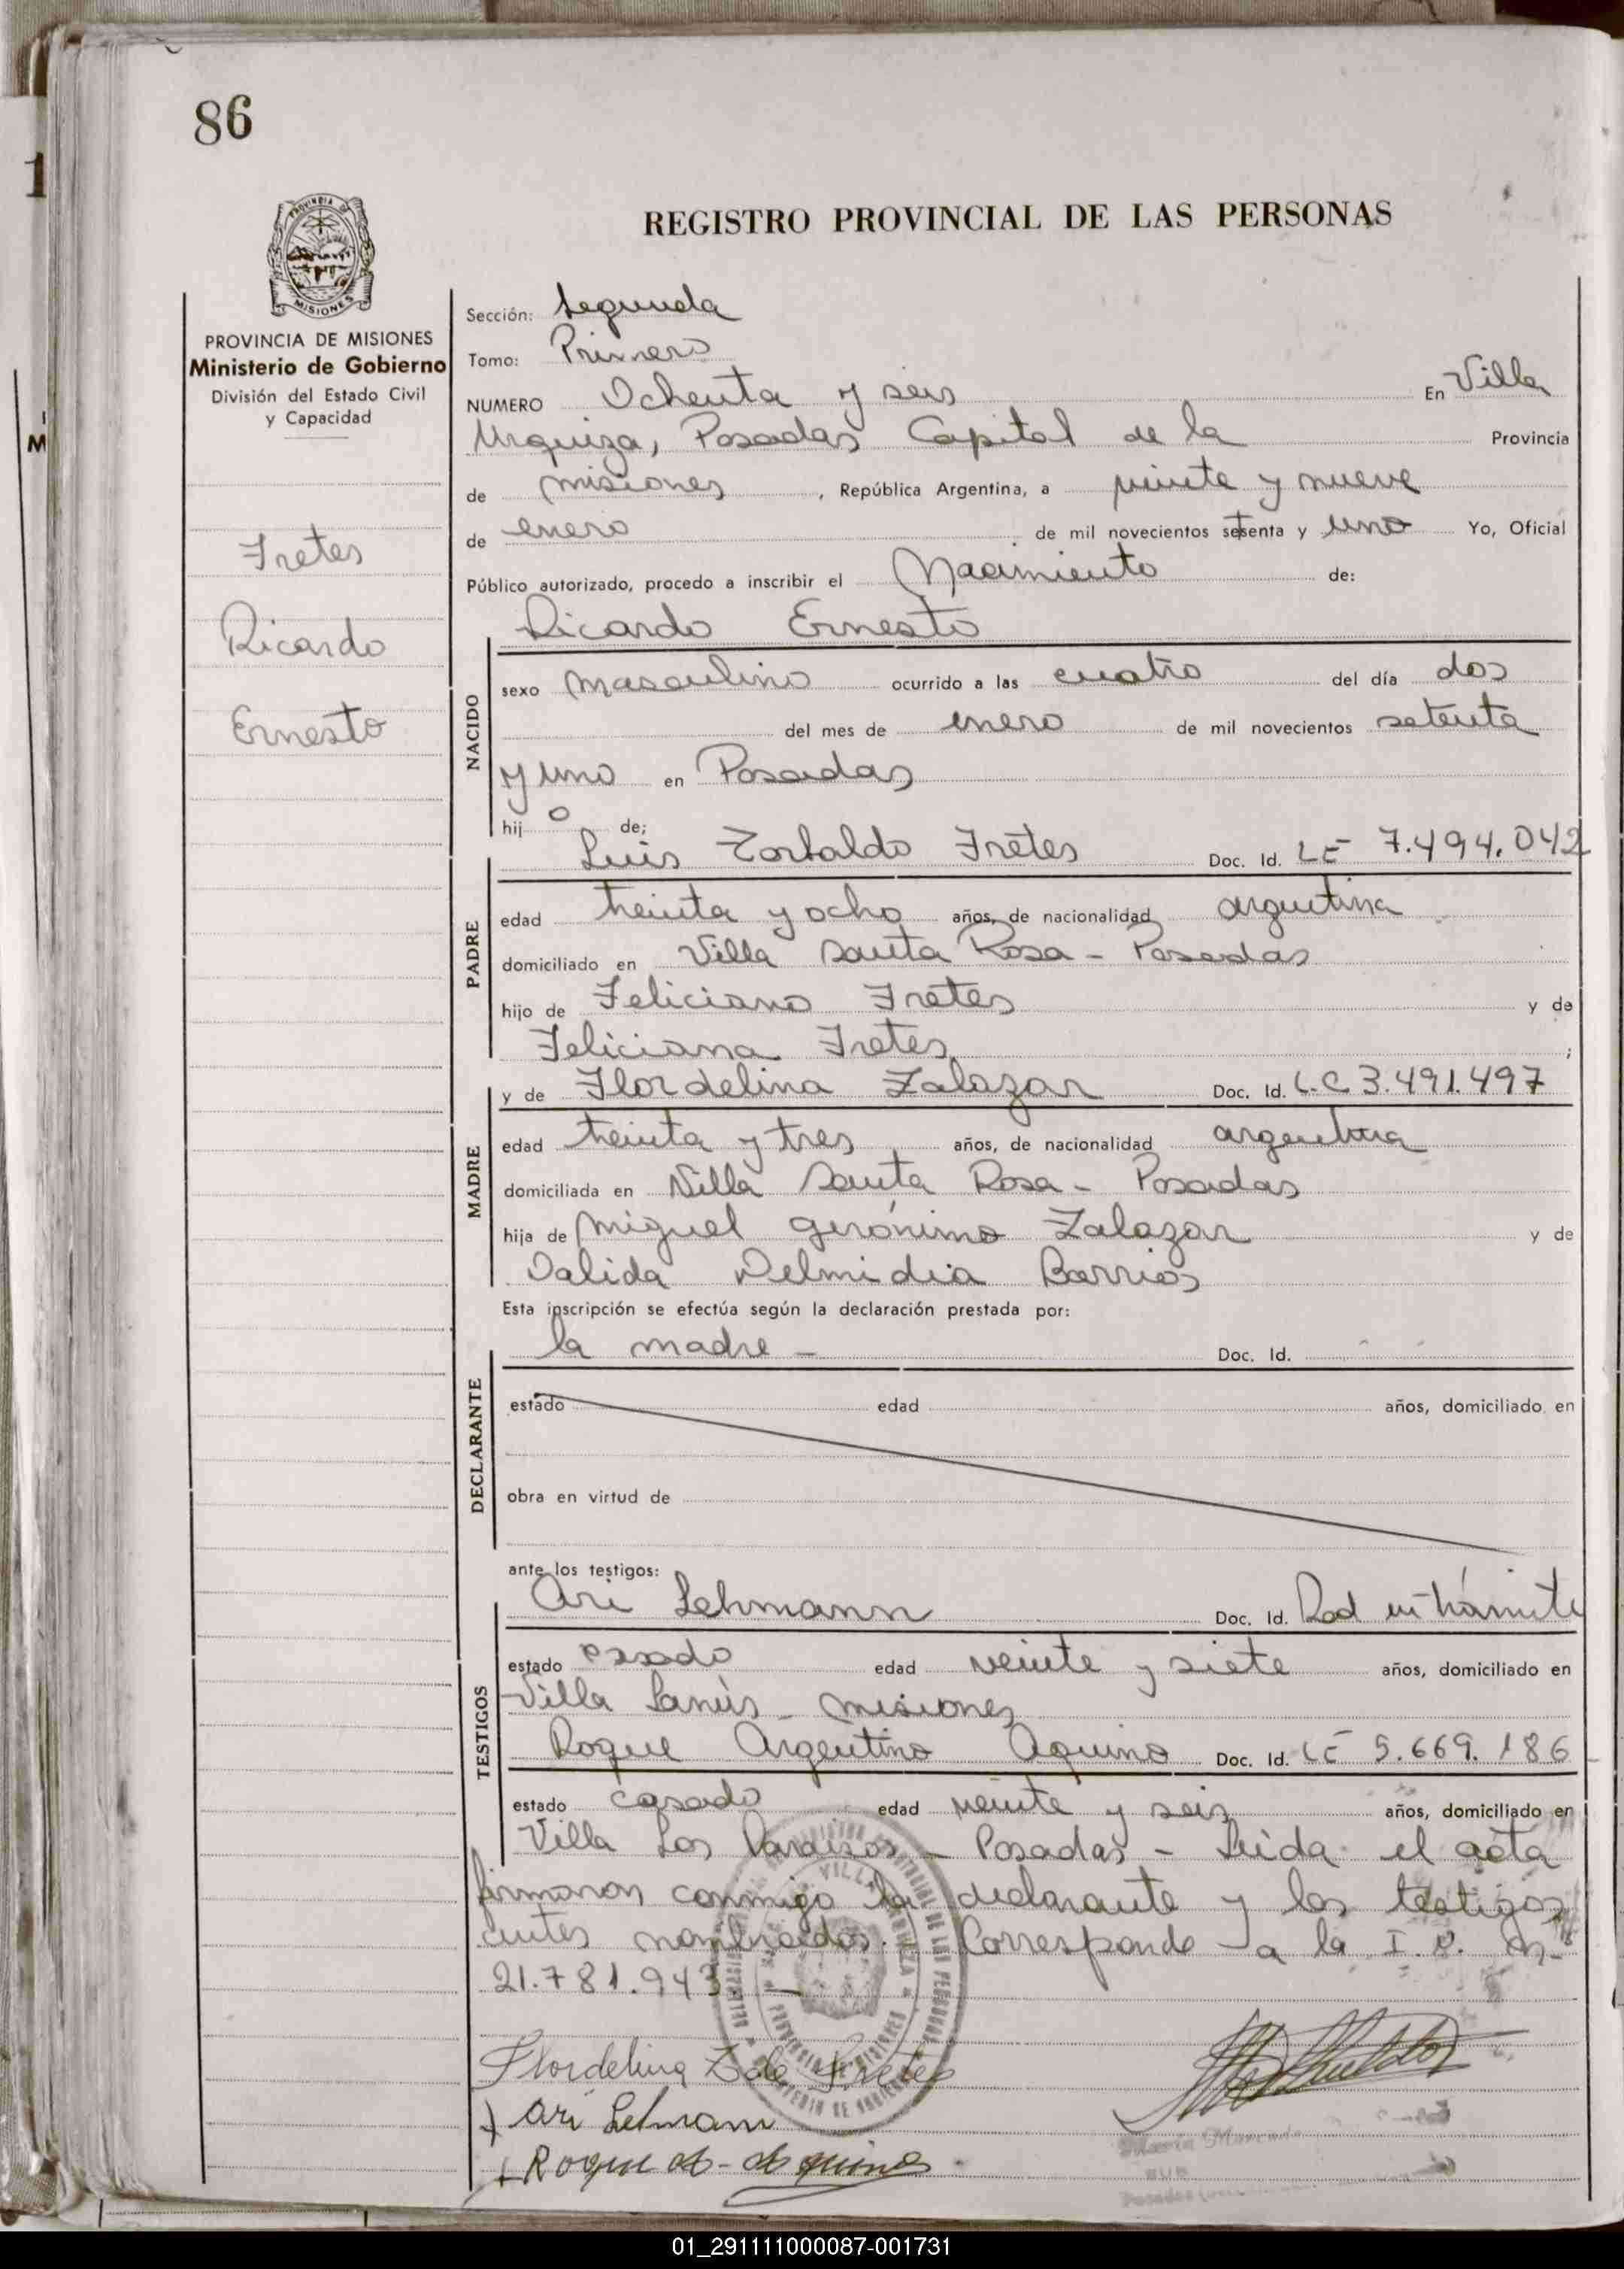 86
REGISTRO PROVINCIAL DE LAS PERSONAS
PROVINCIA DE MISIONES
Ministerio de Gobierno
División del Estado Civil
y Capacidad
Fretes
Ricardo
Ernesto
Sección: Segunda
Tomo: Primero
NUMERO Ochenta y seis En Villa
Urquiza, Posadas Capital de la Provincia
de misiones, República Argentina, a veinte y nueve
de enero de mil novecientos setenta y uno Yo, Oficial
Público autorizado, procedo a inscribir el Nacimiento de:
Ricardo Ernesto
NACIDO
sexo masculino ocurrido a las cuatro del día dos
del mes de enero de mil novecientos setenta
y uno en Posadas
hijo de;
Luis Fretes Doc. Id. LE 7.494.042
PADRE
edad treinta y ocho años, de nacionalidad argentina
domiciliado en Villa Santa Rosa - Posadas
hijo de Feliciano Fretes y de
Feliciana Fretes;
y de Flordelina Zalazar Doc. Id. L.C 3.491.497
MADRE
edad treinta y tres años, de nacionalidad argentina
domiciliada en Villa Santa Rosa - Posadas
hija de Miguel Gerónimo Zalazar y de
Dalida Delmidia Barrios
Esta inscripción se efectúa según la declaración prestada por:
la madre - Doc. Id.
DECLARANTE
estado edad años, domiciliado en
obra en virtud de
ante los testigos:
Ari Lehmann Doc. Id. Rad en trámite
TESTIGOS
estado casado edad veinte y siete años, domiciliado en
Villa Lanús - misiones
Roque Argentino Aquino Doc. Id. LE 5.669.186
estado casado edad veinte y seis años, domiciliado en
Villa Los Paraisos - Posadas - Leida el acta
firmaron conmigo la declarante y los testigos
antes nombrados. - Corresponde a la I.
21.781.943 -
Flordelina Z de Fretes
Ari Lehmann
Roque A. Aquino
01_291111000087-001731